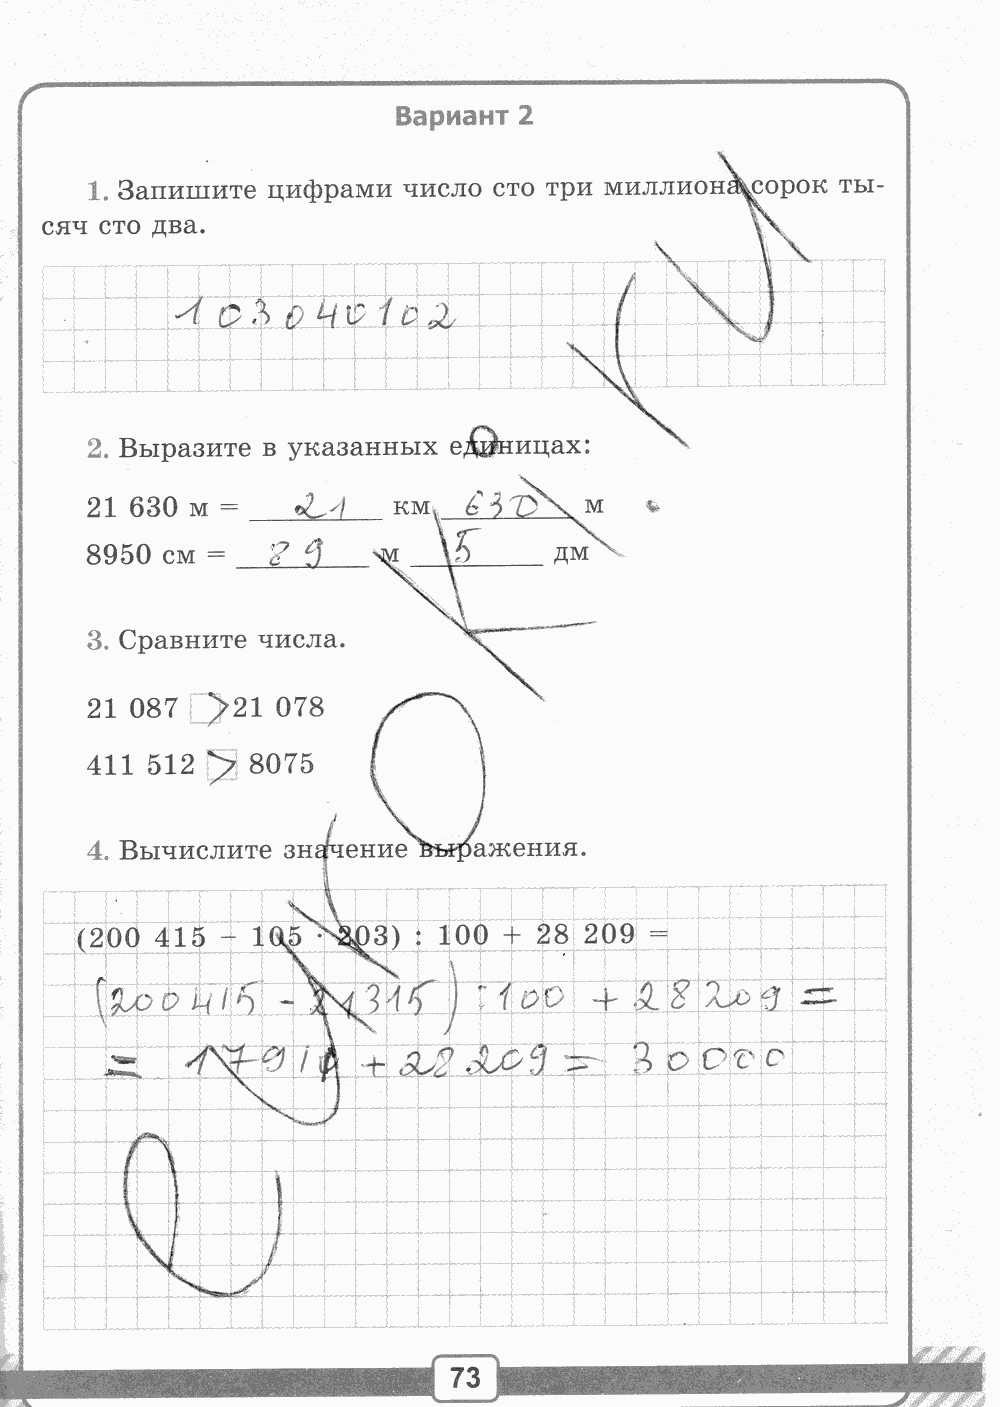 Вариант 2
1. Запишите цифрами число сто три миллиона сорок ты-
сяч сто два.
103040102
2. Выразите в указанных единицах:
21 630 м = 21 км 630 м
8950 см = 89 м 5 дм
3. Сравните числа.
21 087 > 21 078
411 512 > 8075
4. Вычислите значение выражения.
(200 415 − 105 · 203) : 100 + 28 209 =
(200415 - 21315) : 100 + 28209 =
= 17910 + 28209 = 30000
73